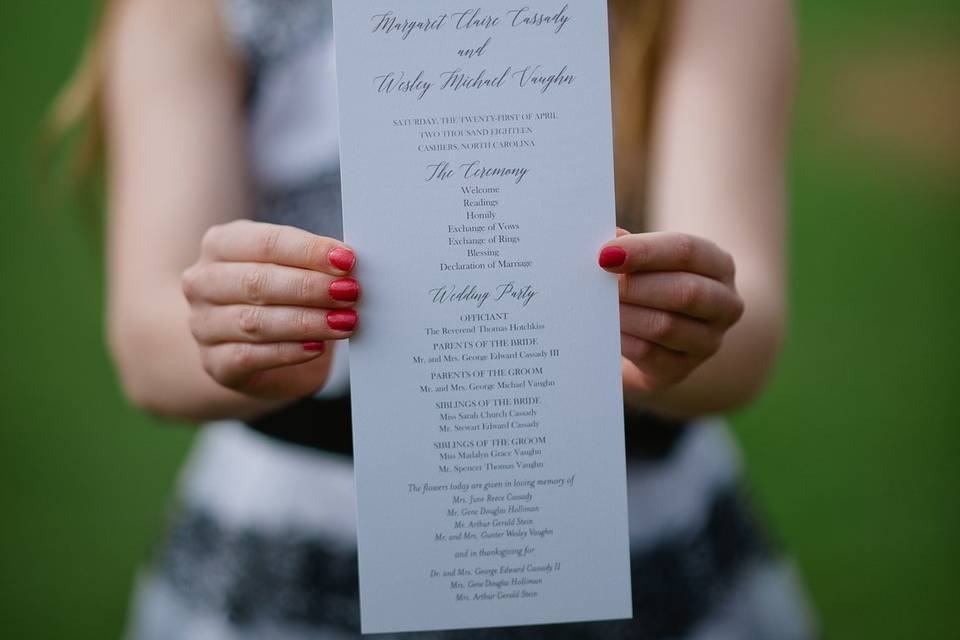 Margaret Claire Cassady
and
Wesley Michael Vaughn
SATURDAY, THE TWENTY-FIRST OF APRIL
TWO THOUSAND EIGHTEEN
CASHIERS, NORTH CAROLINA
The Ceremony
Welcome
Readings
Homily
Exchange of Vows
Exchange of Rings
Blessing
Declaration of Marriage
Wedding Party
OFFICIANT
The Reverend Thomas Hotchkiss
PARENTS OF THE BRIDE
Mr. and Mrs. George Edward Cassady III
PARENTS OF THE GROOM
Mr. and Mrs. George Michael Vaughn
SIBLINGS OF THE BRIDE
Miss Sarah Church Cassady
Mr. Stewart Edward Cassady
SIBLINGS OF THE GROOM
Miss Madalyn Grace Vaughn
Mr. Spencer Thomas Vaughn
The flowers today are given in loving memory of
Mrs. June Reece Cassady
Mr. Gene Douglas Holliman
Mr. Arthur Gerald Stein
Mr. and Mrs. Gunter Wesley Vaughn
and in thanksgiving for
Dr. and Mrs. George Edward Cassady II
Mrs. Gene Douglas Holliman
Mrs. Arthur Gerald Stein